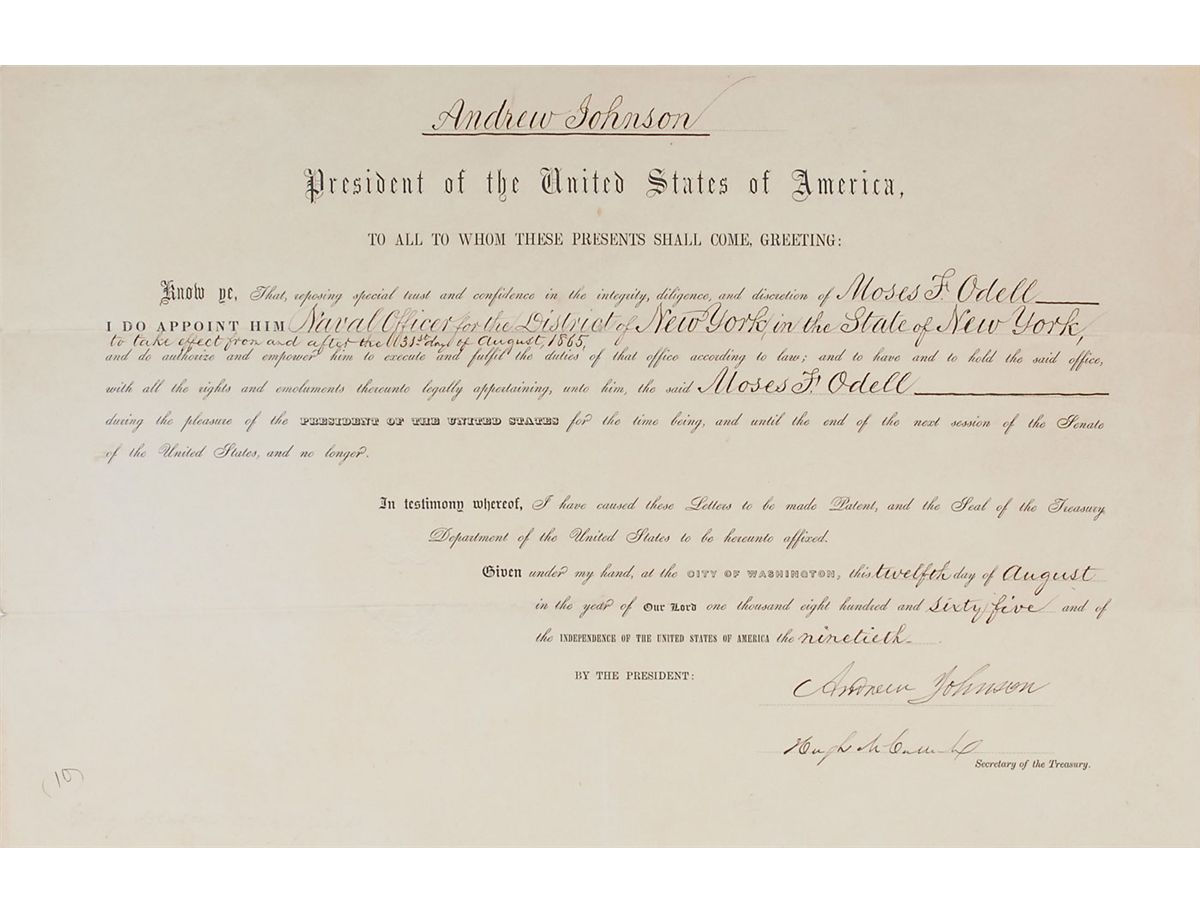 Andrew Johnson
President of the United States of America,
TO ALL TO WHOM THESE PRESENTS SHALL COME, GREETING:
Know ye, That, reposing special trust and confidence in the integrity, diligence, and discretion of Moses F. Odell
I DO APPOINT HIM Naval Officer for the District of New York, in the State of New York,
to take effect from and after the 31st day of August, 1865,
and do authorize and empower him to execute and fulfil the duties of that office according to law; and to have and to hold the said office,
with all the rights and emoluments thereunto legally appertaining, unto him, the said Moses F. Odell
during the pleasure of the PRESIDENT OF THE UNITED STATES for the time being, and until the end of the next session of the Senate
of the United States, and no longer.
In testimony whereof, I have caused these Letters to be made Patent, and the Seal of the Treasury
Department of the United States to be hereunto affixed.
Given under my hand, at the CITY OF WASHINGTON, this twelfth day of August
in the year of Our Lord one thousand eight hundred and sixty five and of
the INDEPENDENCE OF THE UNITED STATES OF AMERICA the ninetieth.
BY THE PRESIDENT:
Andrew Johnson
Hugh McCulloch
Secretary of the Treasury.
(10)